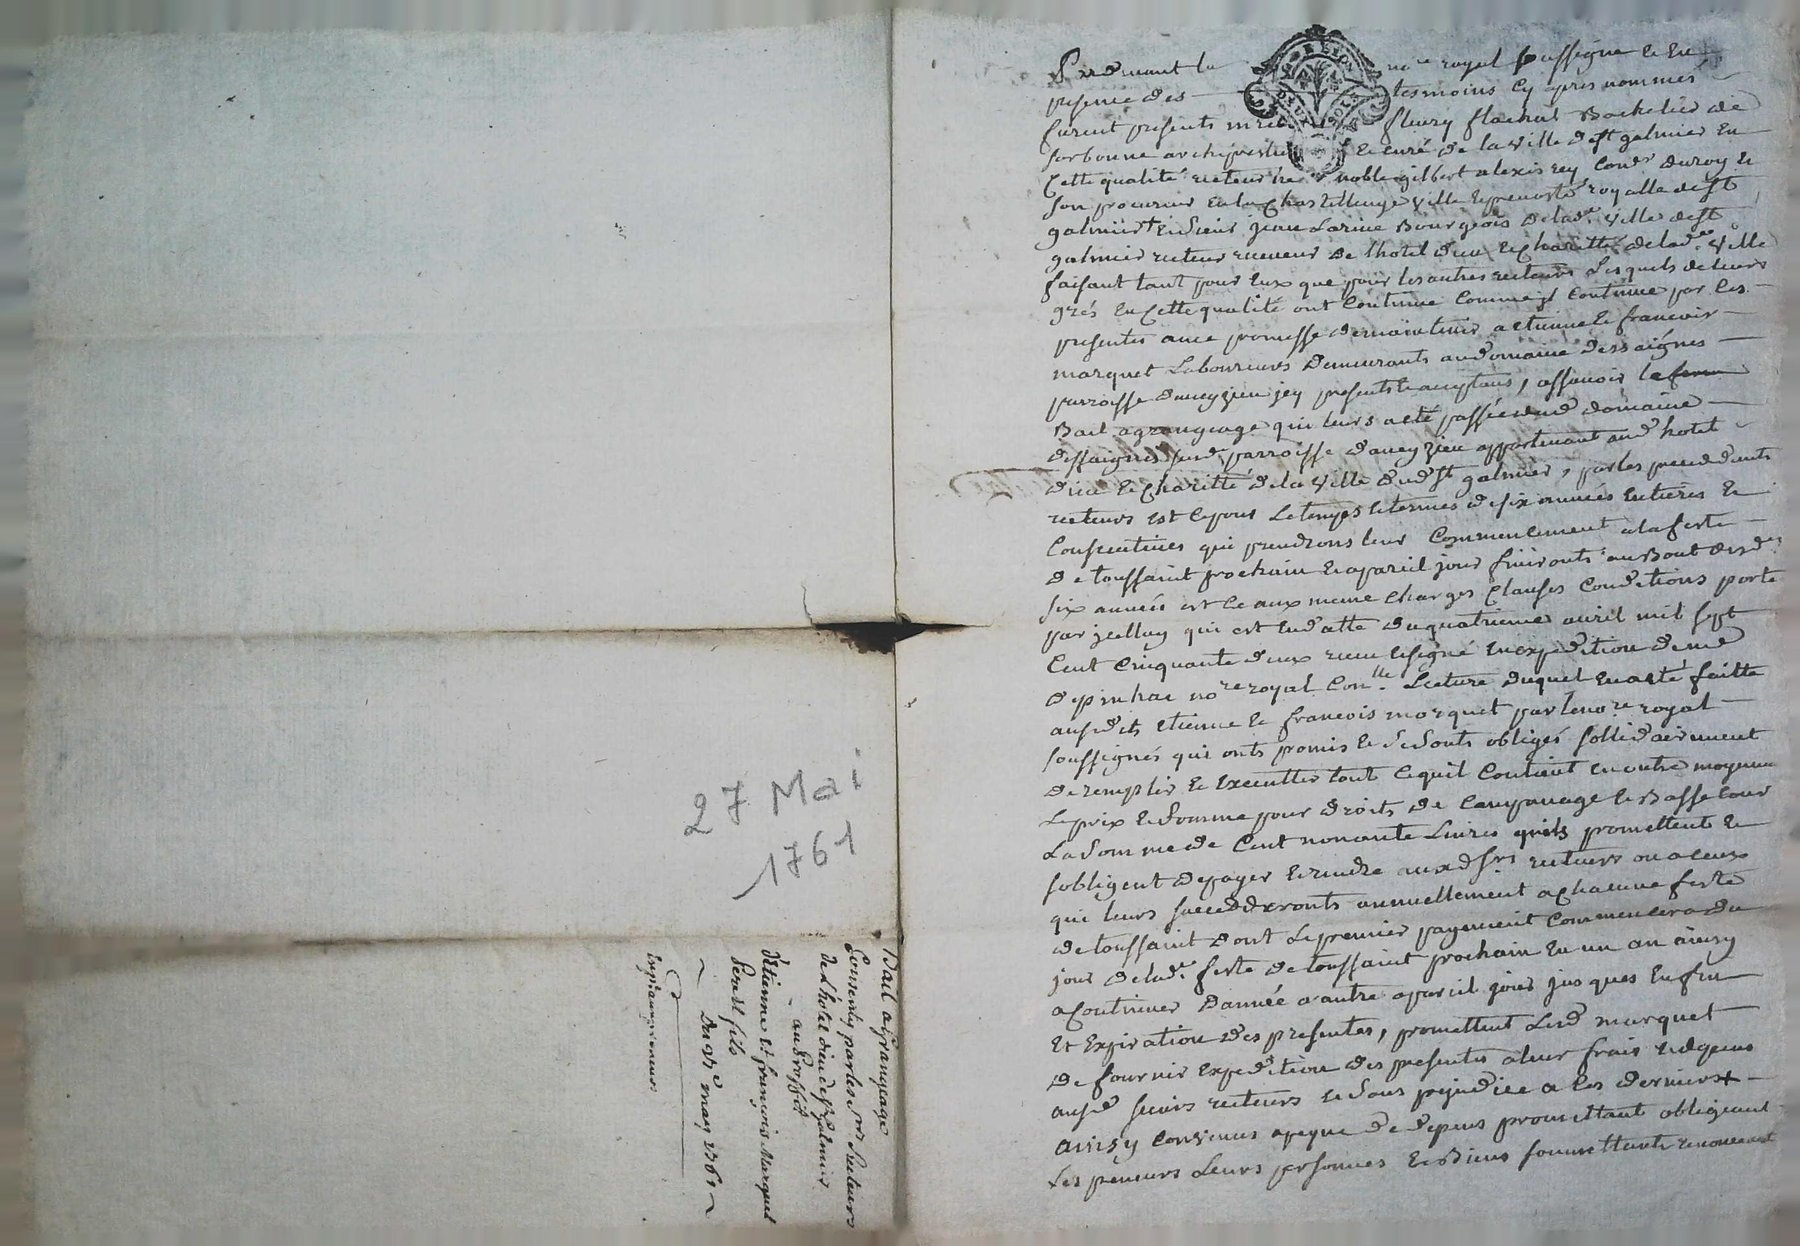 27 Mai
1761
Bail a grangeage
Consenty par les srs Recteurs
de L'hotel dieu de st Galmier
au proffit
d'Etienne et françois Marquet
pere et fils
Du 27e may 1761
Pardevant le nore royal soussigné et en
presence des tesmoins cy apres nommés
furent presents mre fleury flachat Bachelier de
sorbonne archiprestre et curé de la ville de st galmier en
Cette qualité recteur né noble gilbert alexis rey Coner du roy et
son procureur en la Chastellenye ville et prevosté royalle de st
galmier et sieur jean Larine Bourgeois de lade ville de st
galmier recteur receveur de lhotel dieu et Charitté de lade ville
faisant tant pour Eux que pour les autres recteurs Lesquels de leurs
grés en Cette qualité ont Continué Comme Continue par Les
presentes avec promesse de maintenir a etienne et francois
marquet Laboureurs Demeurants au domaine dessaignes
parroisse daveyzieu jcy presents et acceptans, assavoir le
Bail a grangeage qui leurs a eté passée dud domaine
dessaignes sud parroisse d'aveyzieu appartenant aud hotel
dieu et Charitté de la ville dud st galmier, par les precedents
recteurs est Ce pour Le temps et termes de six années entieres et
Consecutives qui prendrons leur Commencement a la feste
de toussaint prochain et a pareil jour finironts au Bout desdes
six années est Ce aux meme Charges Clauses Conditions porté
par jcelluy qui est en datte du quatrieme avril mil sept
Cent Cinquante deux receu et signé en expedition de me
depinhac nore royal Lecture duquel en a eté faitte
ausdits etienne et francois marquet par le nore royal
soussignés qui onts promis et se sonts obligés sollidairement
de remplir et executter tout Ce quil Contient en outre moyenn
Le prix et somme pour droits de Campanage et Basse Cour
La somme de Cent nonante Livres quils promettent et
sobligent de payer et rendre auxd srs recteurs ou a Ceux
qui leurs succedderonts annuellement a Chacune feste
de toussaint dont Le premier payement Commencera du
jour de lade feste de toussaint prochain en un an ainsy
a Continuer dannée a autre a pareil jour jusques en fin
Et Expiration des presentes, promettent Lesd marquet
de fournir Expedition des presentes a leur frais
ausd sieurs recteurs et sans prejudice a Ces derniers
ainsy Convenus a peyne de depens promettant obligeant
Les preneurs Leurs personnes et Biens soumettants renonceant